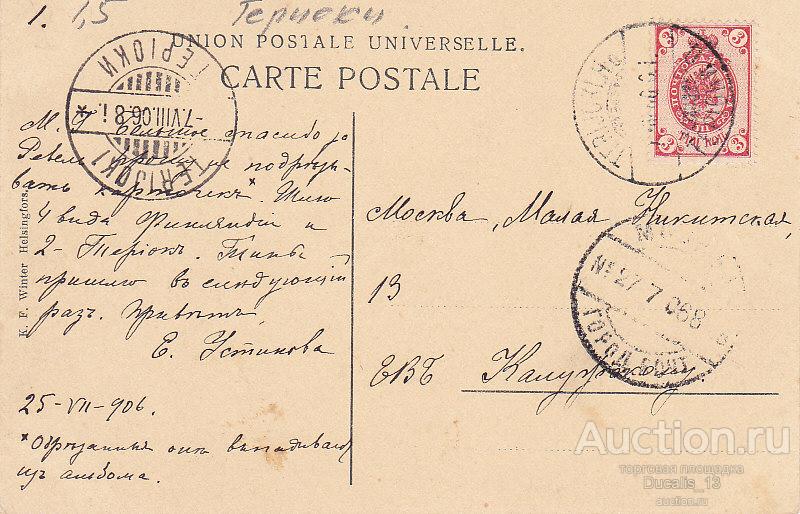 1. 1,5 Териоки.
UNION POSTALE UNIVERSELLE.
CARTE POSTALE
ТЕРІОКИ
-7.VIII.06.8 i.
TERIJOKI
3 3
3 3
М. Г. Большое спасибо за
Ревель прошу не подрѣзы-
вать карточекъ*. Шлю
4 вида Финляндіи и
2 - Теріокъ. Типы
пришлю въ слѣдующій
разъ. Привѣтъ
Е. Устинова
25-VII-906.
*Обрѣзанныя они выпадываютъ
изъ альбома.
K. F. Winter Helsingfors.
Москва, Малая Никитская,
13
ЕВБ Калужскому.
№ 27 7 906 8
ГОРОД. ПОЧТ
Auction.ru
торговая площадка
Ducalis_13
auction.ru